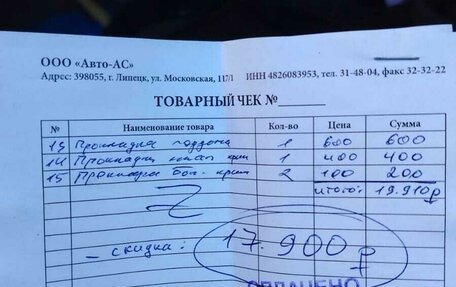 ООО «Авто-АС»
Адрес: 398055, г. Липецк, ул. Московская, 117/1 ИНН 4826083953, тел. 31-48-04, факс 32-32-22
ТОВАРНЫЙ ЧЕК №
№ Наименование товара Кол-во Цена Сумма
13 Прокладка поддона 1 600 600
14 Прокладки клап крыш 1 400 400
15 Прокладка крыш 2 100 200
итого: 19.910р
- скидка: 17.900р
ОПЛАЧЕНО